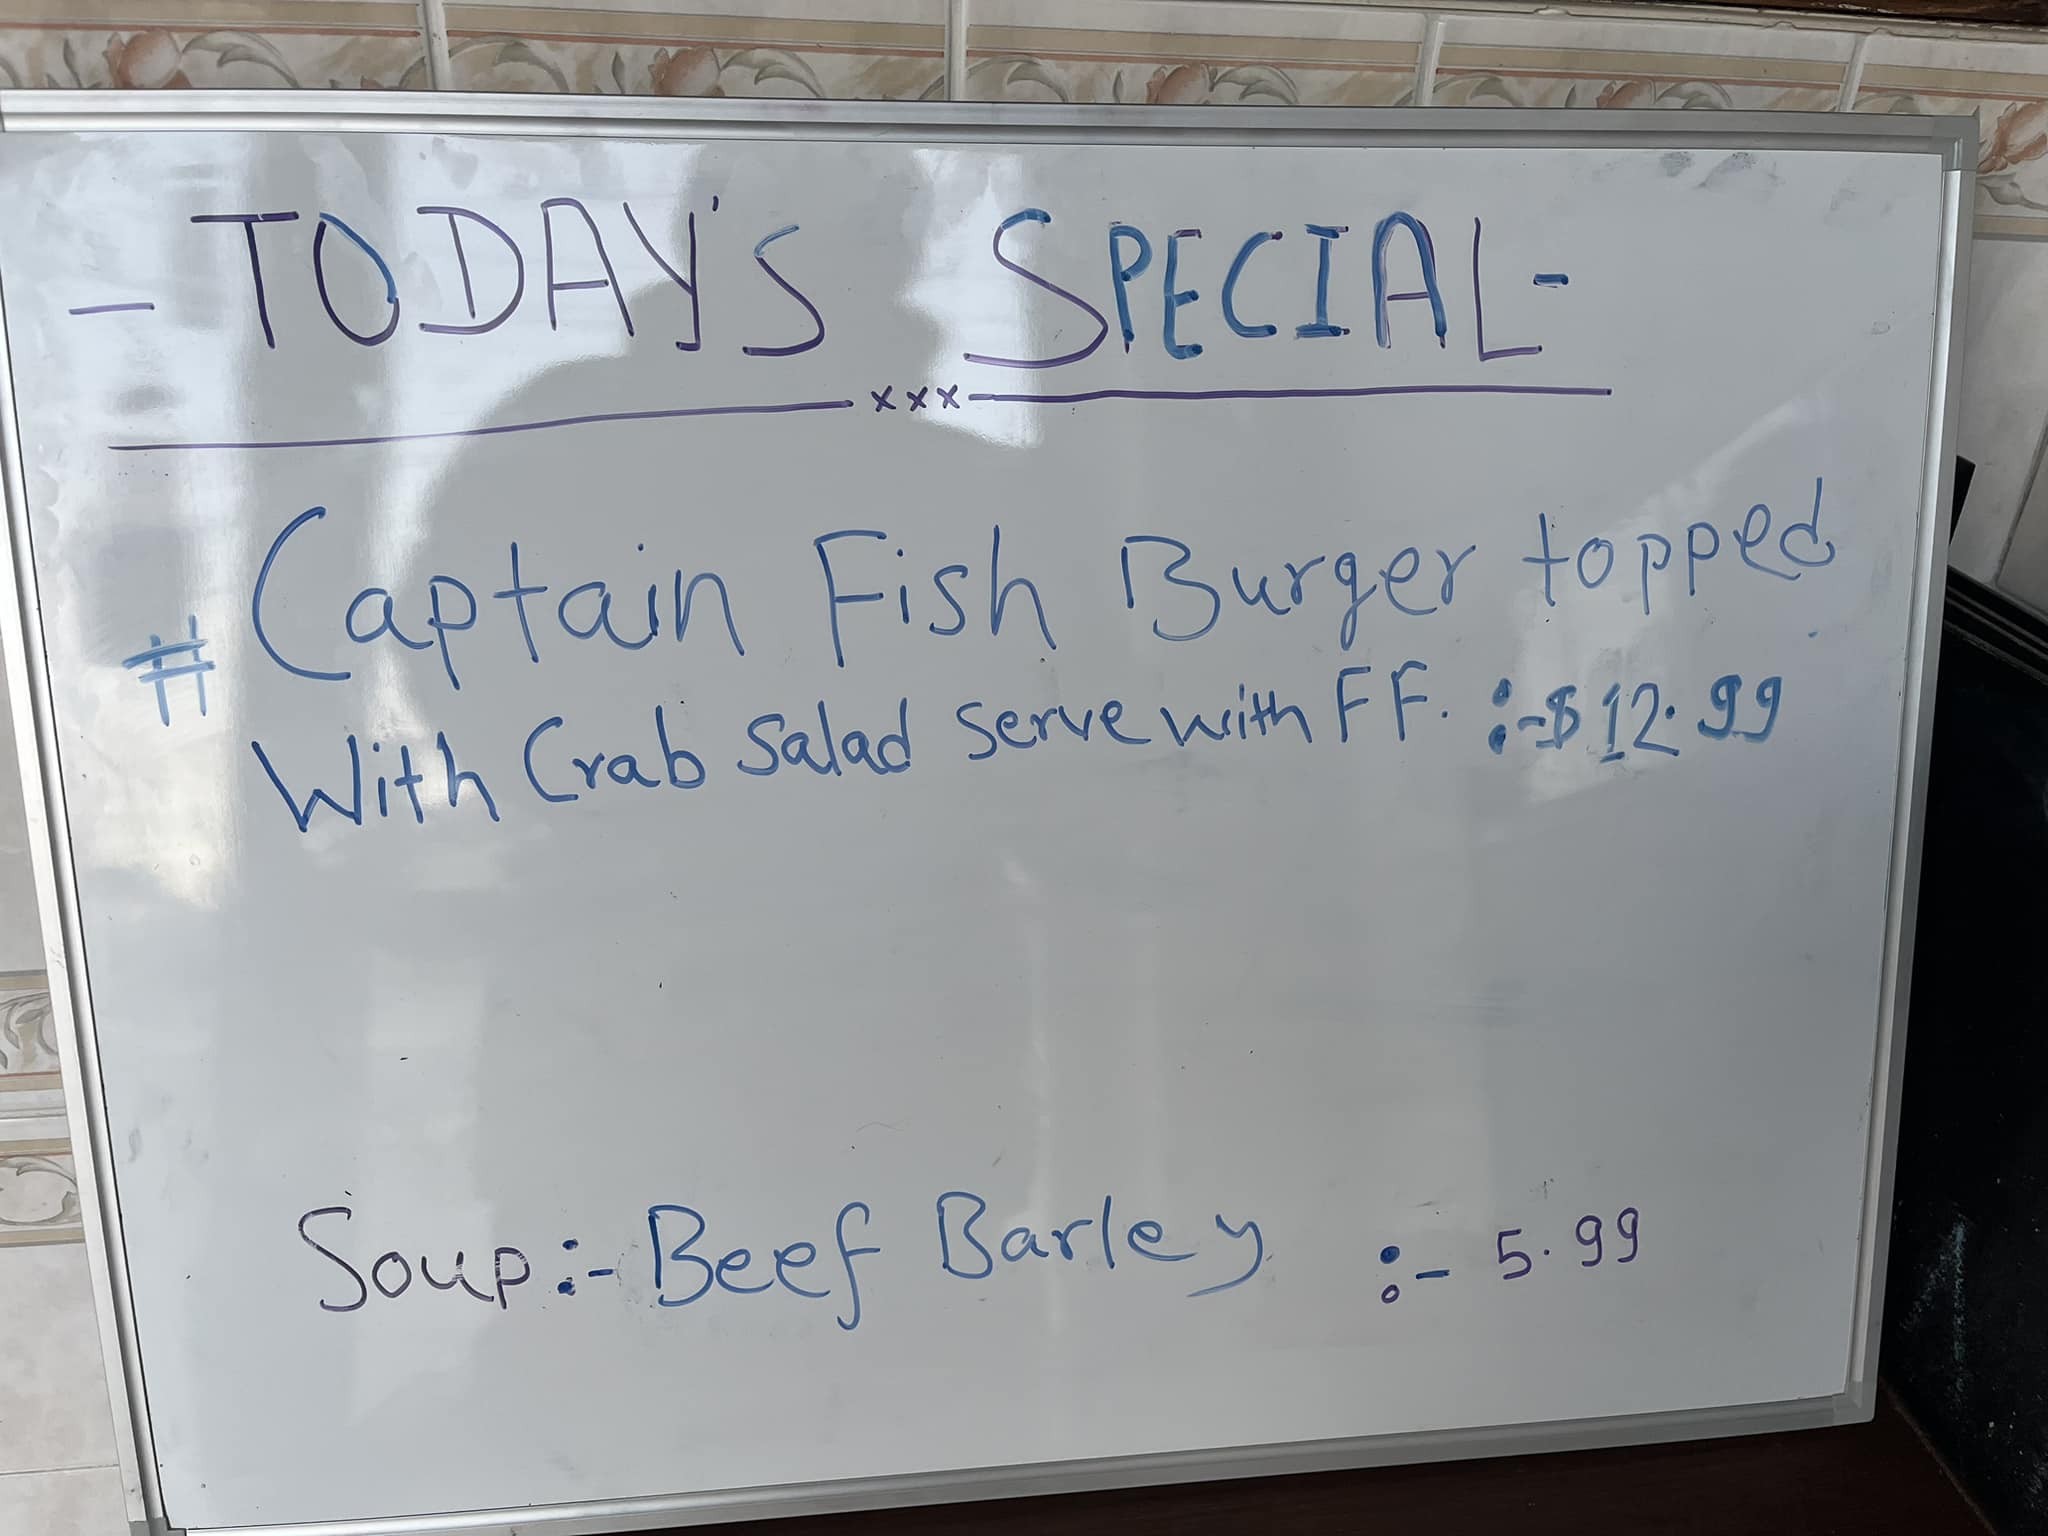 - TODAY'S SPECIAL -
xxx
# Captain Fish Burger topped
With Crab Salad Serve with FF. :-$12.99
Soup:- Beef Barley :- 5.99